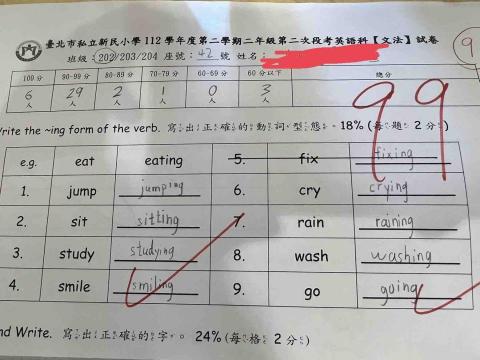 臺北市私立新民小學 112 學年度第二學期二年級第二次段考英語科【文法】試卷
班級：202/203/204 座號：42 號 姓名：
100 分 90-99 分 80-89 分 70-79 分 60-69 分 60 分以下 總分
6人 29人 2人 1人 0人 3人 99
Write the ~ing form of the verb. 寫出正確的動詞型態。18% (每題 2 分)
e.g. eat eating 5. fix fixing
1. jump jumping 6. cry crying
2. sit sitting 7. rain raining
3. study studying 8. wash washing
4. smile smiling 9. go going
nd Write. 寫出正確的字。 24% (每格 2 分)